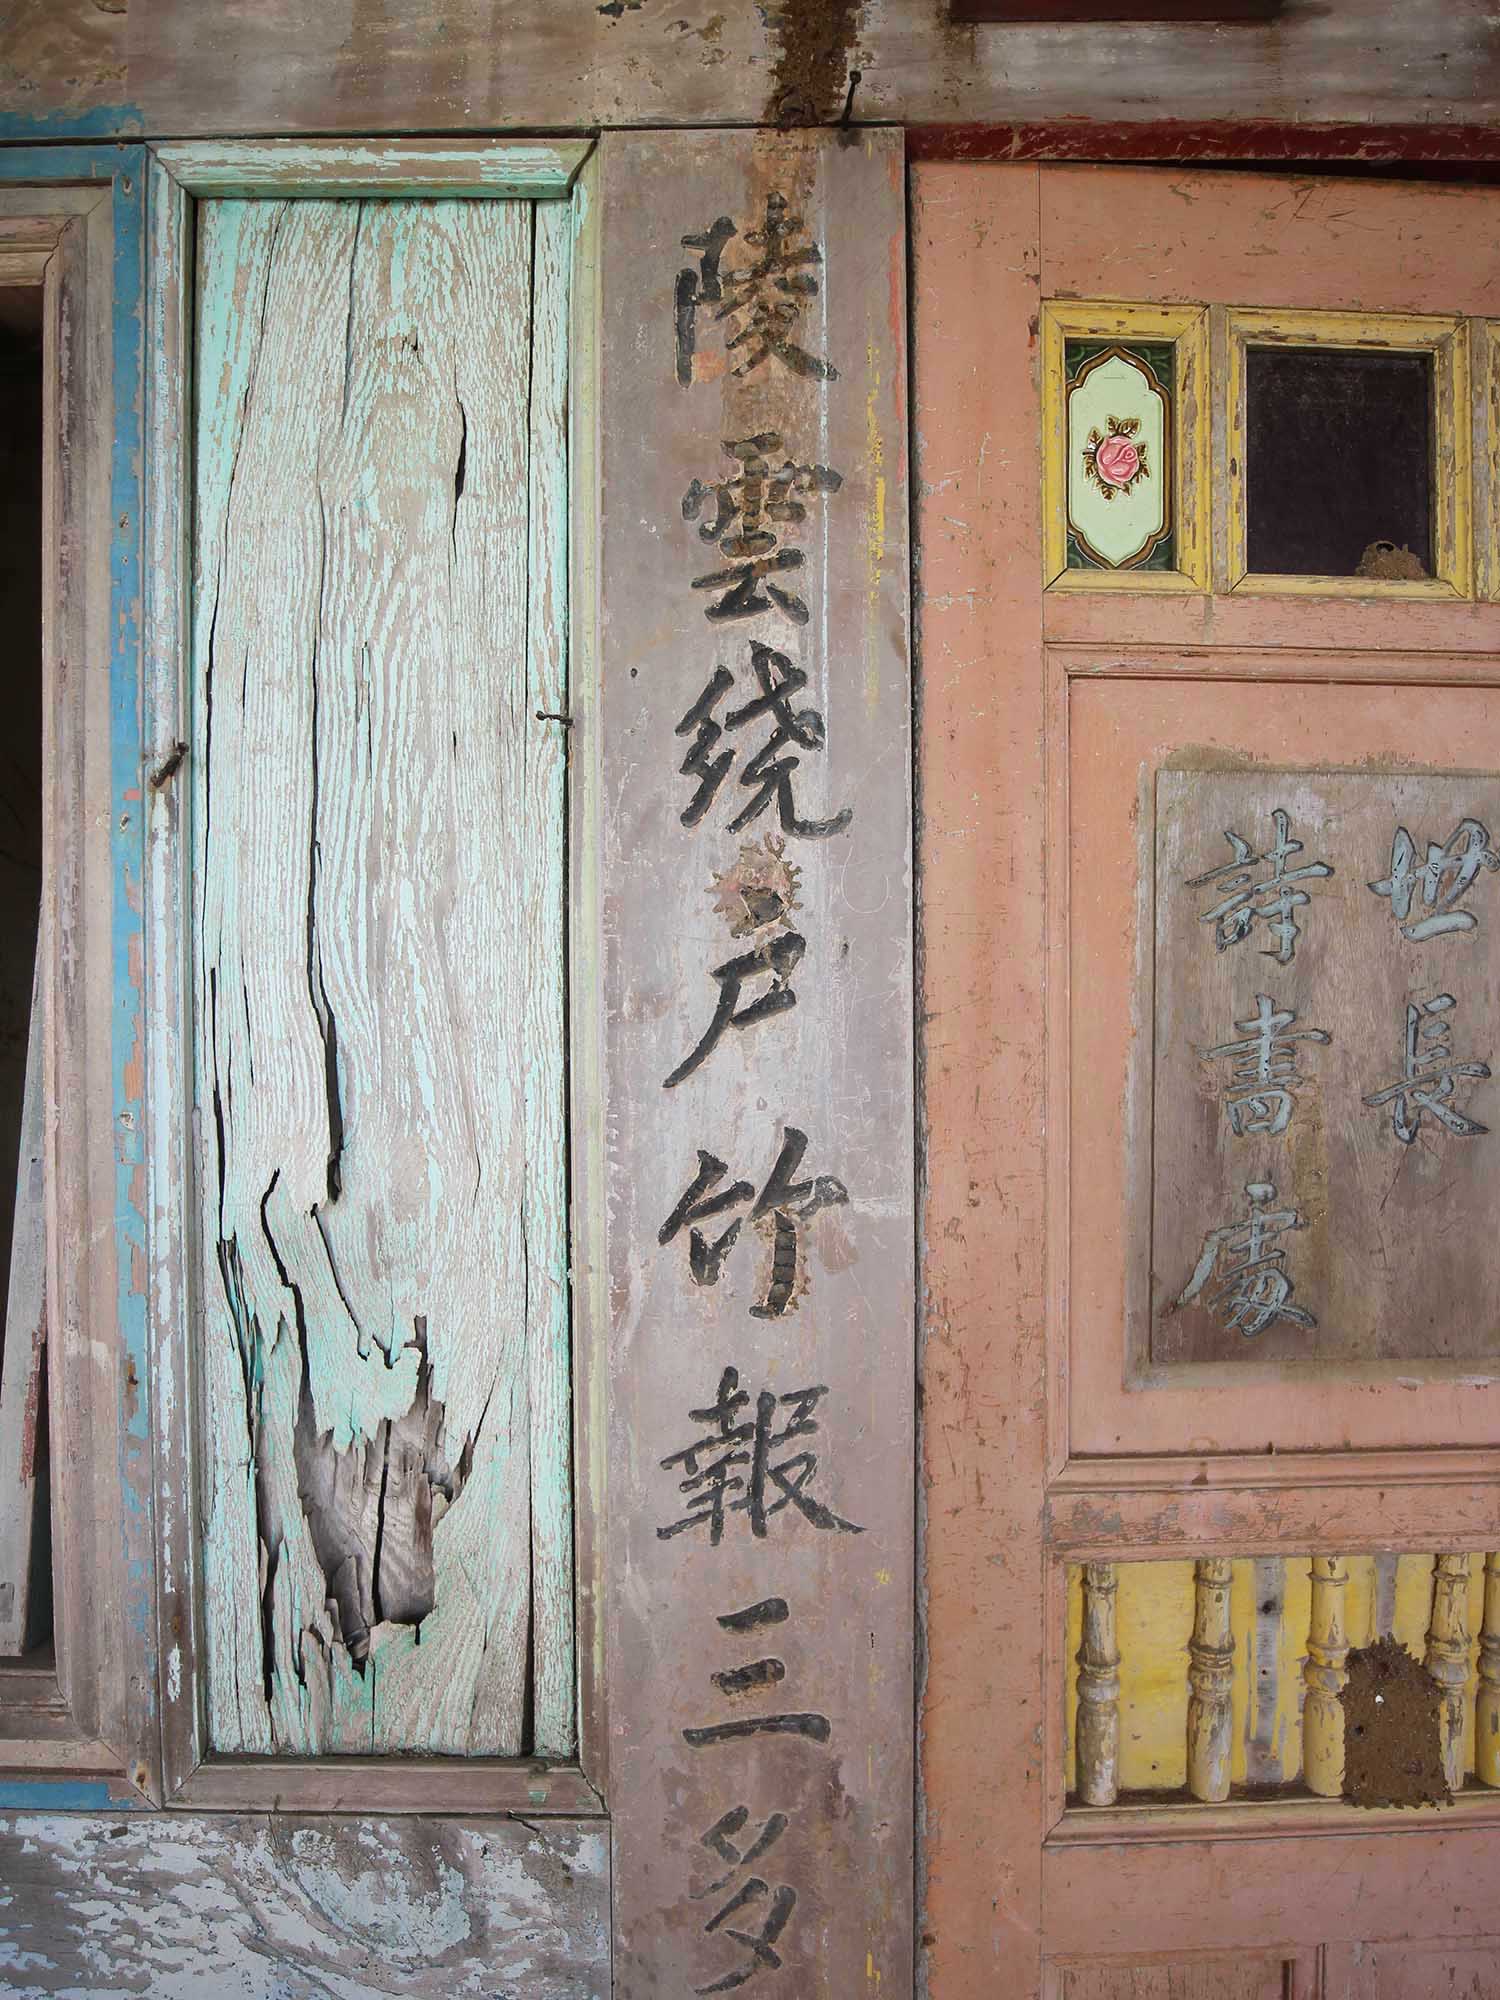 陵雲繞戶竹報三多
詩書處
世長